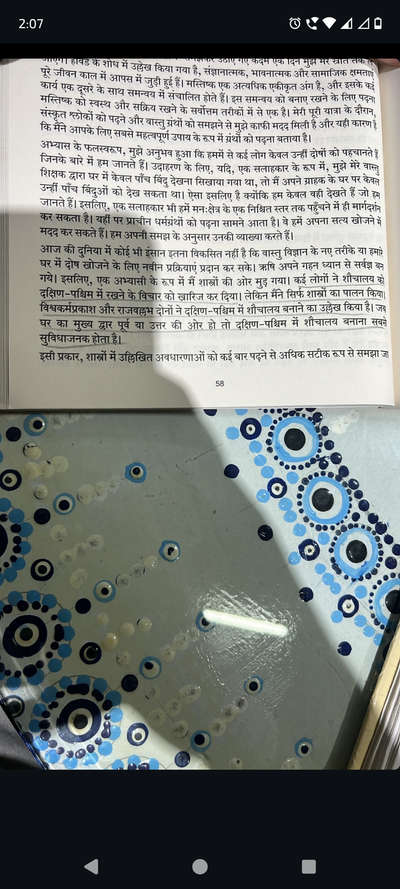 2:07
जाएगा। हार्वर्ड के शोध में उल्लेख किया गया है, संज्ञानात्मक, भावनात्मक और सामाजिक क्षमताएं
पूरे जीवन काल में आपस में जुड़ी हुई हैं। मस्तिष्क एक अत्यधिक एकीकृत अंग है, और इसके कई
कार्य एक दूसरे के साथ समन्वय में संचालित होते हैं। इस समन्वय को बनाए रखने के लिए पढ़ना
मस्तिष्क को स्वस्थ और सक्रिय रखने के सर्वोत्तम तरीकों में से एक है। मेरी पूरी यात्रा के दौरान,
संस्कृत श्लोकों को पढ़ने और वास्तु ग्रंथों को समझने से मुझे काफी मदद मिली है और यही कारण है
कि मैंने आपके लिए सबसे महत्वपूर्ण उपाय के रूप में ग्रंथों को पढ़ना बताया है।
अभ्यास के फलस्वरूप, मुझे अनुभव हुआ कि हममें से कई लोग केवल उन्हीं दोषों को पहचानते हैं
जिनके बारे में हम जानते हैं। उदाहरण के लिए, यदि, एक सलाहकार के रूप में, मुझे मेरे वास्तु
शिक्षक द्वारा घर में केवल पाँच बिंदु देखना सिखाया गया था, तो मैं अपने ग्राहक के घर पर केवल
उन्हीं पाँच बिंदुओं को देख सकता था। ऐसा इसलिए है क्योंकि हम केवल वही देखते हैं जो हम
जानते हैं। इसलिए, एक सलाहकार भी हमें मनःक्षेत्र के एक निश्चित स्तर तक पहुँचने में ही मार्गदर्शन
कर सकता है। यहीं पर प्राचीन धर्मग्रंथों को पढ़ना सामने आता है। वे हमें अपना सत्य खोजने में
मदद कर सकते हैं। हम अपनी समझ के अनुसार उनकी व्याख्या करते हैं।
आज की दुनिया में कोई भी इंसान इतना विकसित नहीं है कि वास्तु विज्ञान के नए तरीके या हमारे
घर में दोष खोजने के लिए नवीन प्रक्रियाएं प्रदान कर सके। ऋषि अपने गहन ध्यान से सर्वज्ञ बन
गये। इसलिए, एक अभ्यासी के रूप में मैं शास्त्रों की ओर मुड़ गया। कई लोगों ने शौचालय को
दक्षिण-पश्चिम में रखने के विचार को खारिज कर दिया। लेकिन मैंने सिर्फ शास्त्रों का पालन किया।
विश्वकर्मप्रकाश और राजवल्लभ दोनों ने दक्षिण-पश्चिम में शौचालय बनाने का उल्लेख किया है। जब
घर का मुख्य द्वार पूर्व या उत्तर की ओर हो तो दक्षिण-पश्चिम में शौचालय बनाना सबसे
सुविधाजनक होता है।
इसी प्रकार, शास्त्रों में उल्लिखित अवधारणाओं को कई बार पढ़ने से अधिक सटीक रूप से समझा जा
58